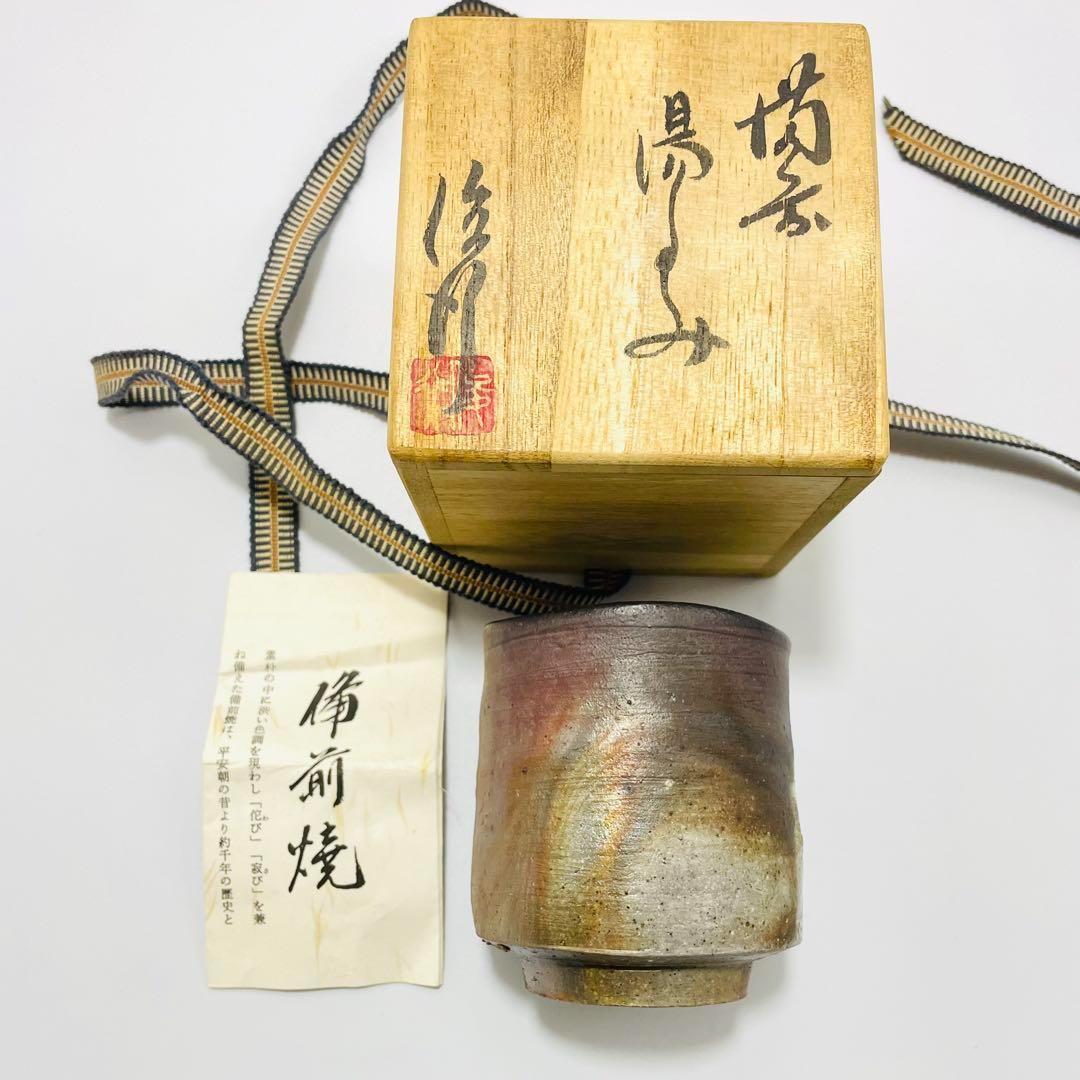 備前
湯のみ
備前焼
素朴の中に渋い色調を現わし「侘び」「寂び」を兼
わ
さ
ね備えた備前焼は、平安朝の昔より約千年の歴史と